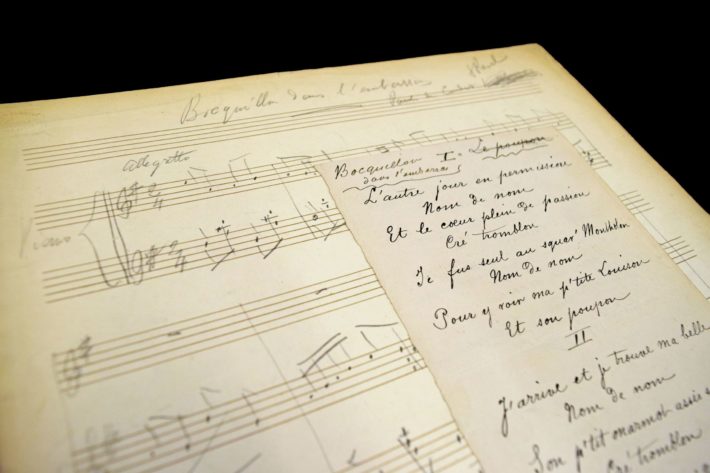 Bocquillon dans l'embarras
Paul
Paul de
Allegretto
Piano
Bocquillon I Le poupon
dans l'embarras
L'autre jour en permission
Nom de nom
Et le cœur plein de passion
Cré tromblon
Je fus seul au squar' Montholon
Nom de nom
Pour y voir ma p'tite Louison
Et son poupon
II
J'arrive et j'trouve ma belle
Nom de nom
Son p'tit marmot assis
Cré tromblon